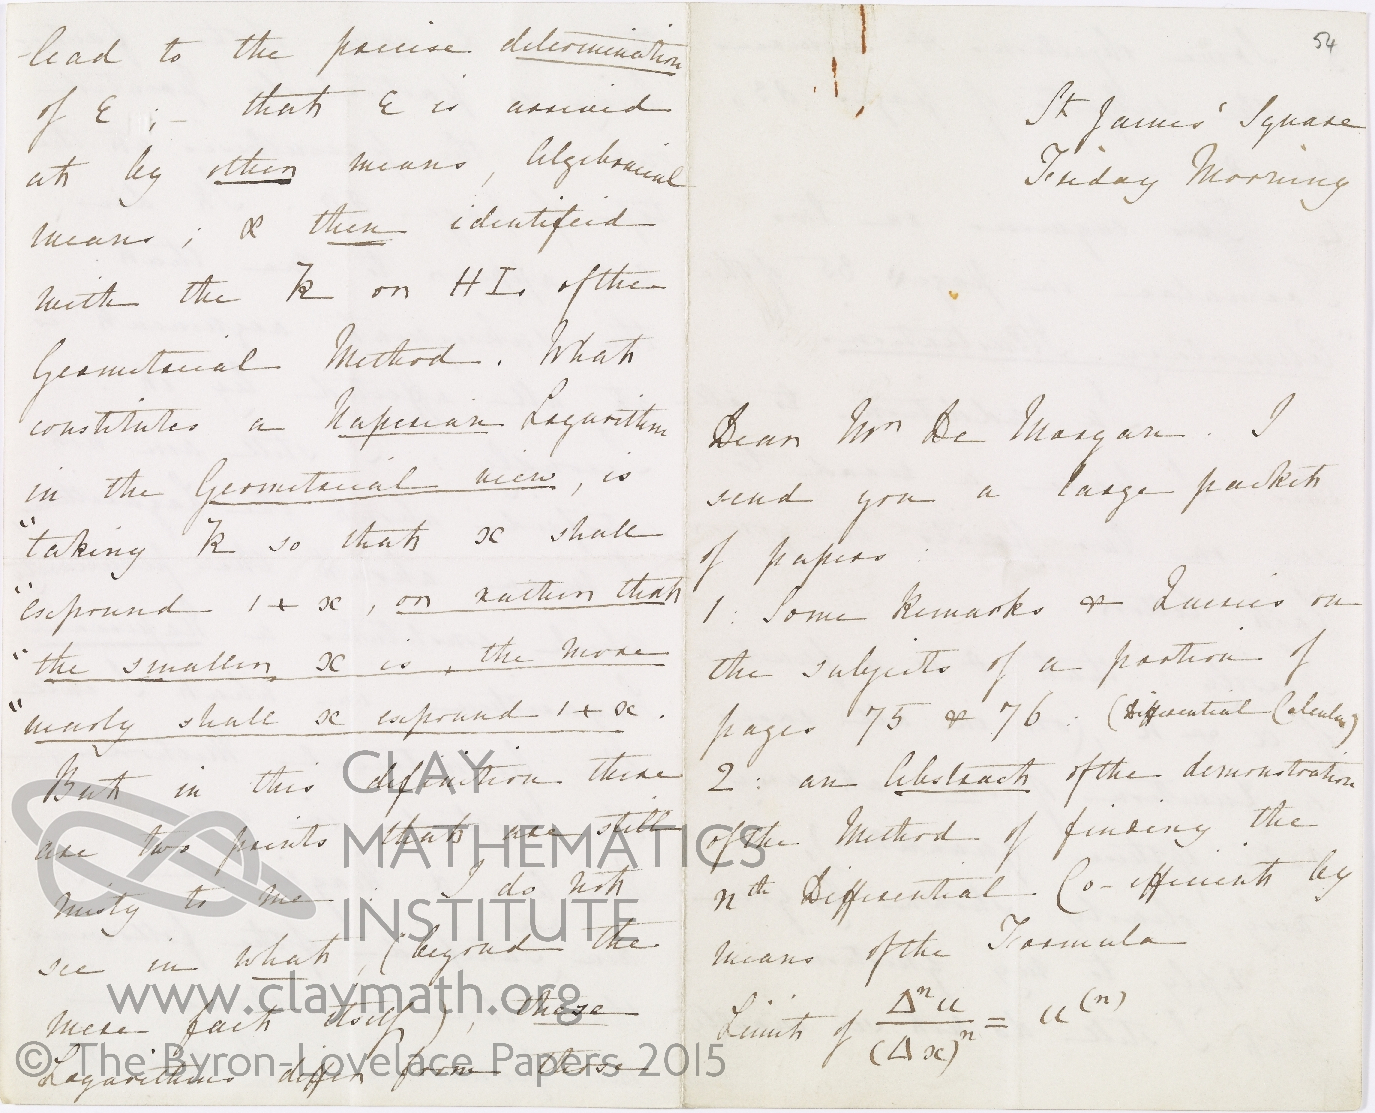 lead to the precise determination
of ε ; – that ε is arrived
at by other means, Algebraical
means ; & then identified
with the k on HI, of the
Geometrical Method. What
constitutes a Naperian Logarithm
in the Geometrical view, is
"taking k so that x shall
"expound 1+x, or rather that
"the smaller x is, the more
"nearly shall x expound 1+x.
But in this definition there
are two points that are still
misty to me : I do not
see in what, (beyond the
mere fact itself), these
Logarithms differ from those
54
St James' Square
Friday Morning
Dear Mr De Morgan. I
send you a large packet
of papers :
1 : Some Remarks & Queries on
the subjects of a portion of
pages 75 & 76 : (Differential Calculus)
2 : an Abstract of the demonstration
of the Method of finding the
nth Differential Co-efficient by
means of the Formula
Limit of Δⁿu/(Δx)ⁿ = u⁽ⁿ⁾
CLAY
MATHEMATICS
INSTITUTE
www.claymath.org
© The Byron-Lovelace Papers 2015